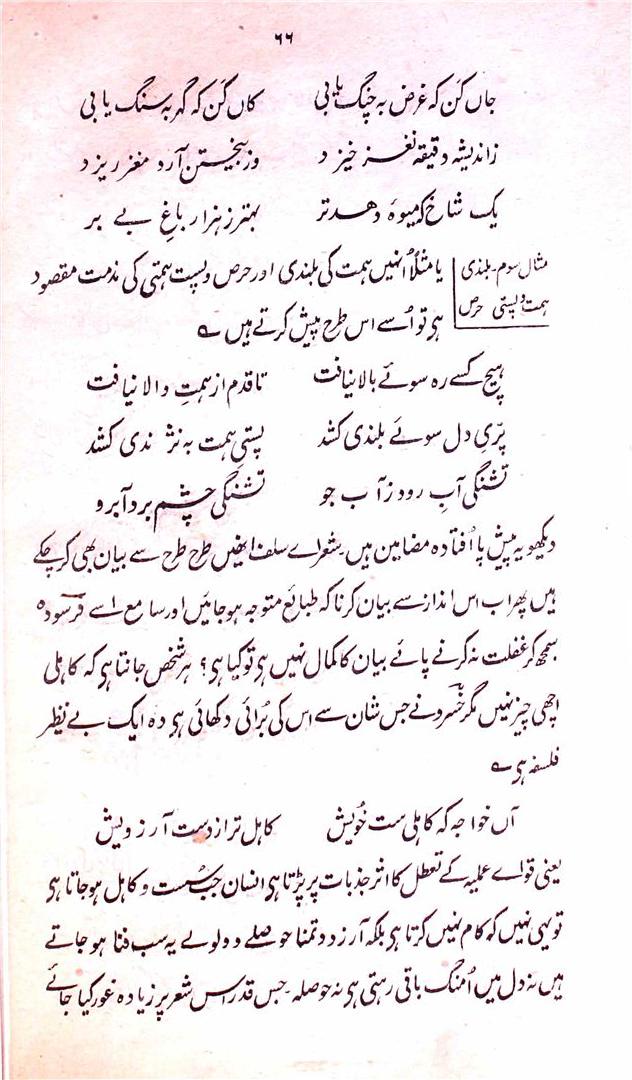 ۶۶
جاں کَن کہ غرض بہ چنگ یابی کاں کَن کہ گہر بہ سنگ یابی
زاندیشہ دقیقہ نغز خیزد وز بیختن آرد مغز ریزد
یک شاخ کہ میوۂ دھد تر بہتر ز ہزار باغِ بے بر
مثال سوم۔ بلندی ہمت و پستی حرص
یا مثلاً اُنہیں ہمت کی بلندی اور حرص و پست ہمتی کی مذمت مقصود
ہی تو اُسے اس طرح پیش کرتے ہیں ؎
ہیچ کسے رہ سوئے بالا نیافت تا قدم از ہمتِ والا نیافت
پرّیِ دل سوئے بلندی کشد پستیِ ہمت بہ نژندی کشد
تشنگیِ آب رود ز آب جو تشنگیِ چشم برد آبرو
دیکھو یہ پیش پا اُفتادہ مضامین ہیں۔ شعراے سلف انھیں طرح طرح سے بیان بھی کر چکے
ہیں پھر اب اس انداز سے بیان کرنا کہ طبائع متوجہ ہو جائیں اور سامع اسے فرسودہ
سمجھ کر غفلت نہ کرنے پائے بیان کا کمال نہیں ہی تو کیا ہی؟ ہر شخص جانتا ہی کہ کاہلی
اچھی چیز نہیں مگر خسرو نے جس شان سے اس کی بُرائی دکھائی ہی وہ ایک بے نظیر
فلسفہ ہی ؎
آں خواجہ کہ کاہلی ست خُویش کاہل تر از دست آرزویش
یعنی قواے عملیہ کے تعطل کا اثر جذبات پر پڑتا ہی انسان جب سُست و کاہل ہو جاتا ہی
تو یہی نہیں کہ کام نہیں کرتا ہی بلکہ آرزو و تمنا حوصلے و ولولے یہ سب فنا ہو جاتے
ہیں نہ دل میں اُمنگ باقی رہتی ہی نہ حوصلہ۔ جس قدر اس شعر پر زیادہ غور کیا جائے